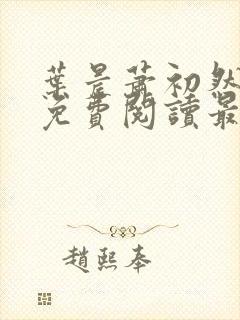 葉晨蕭初然
免費閱讀最
趙熙奉